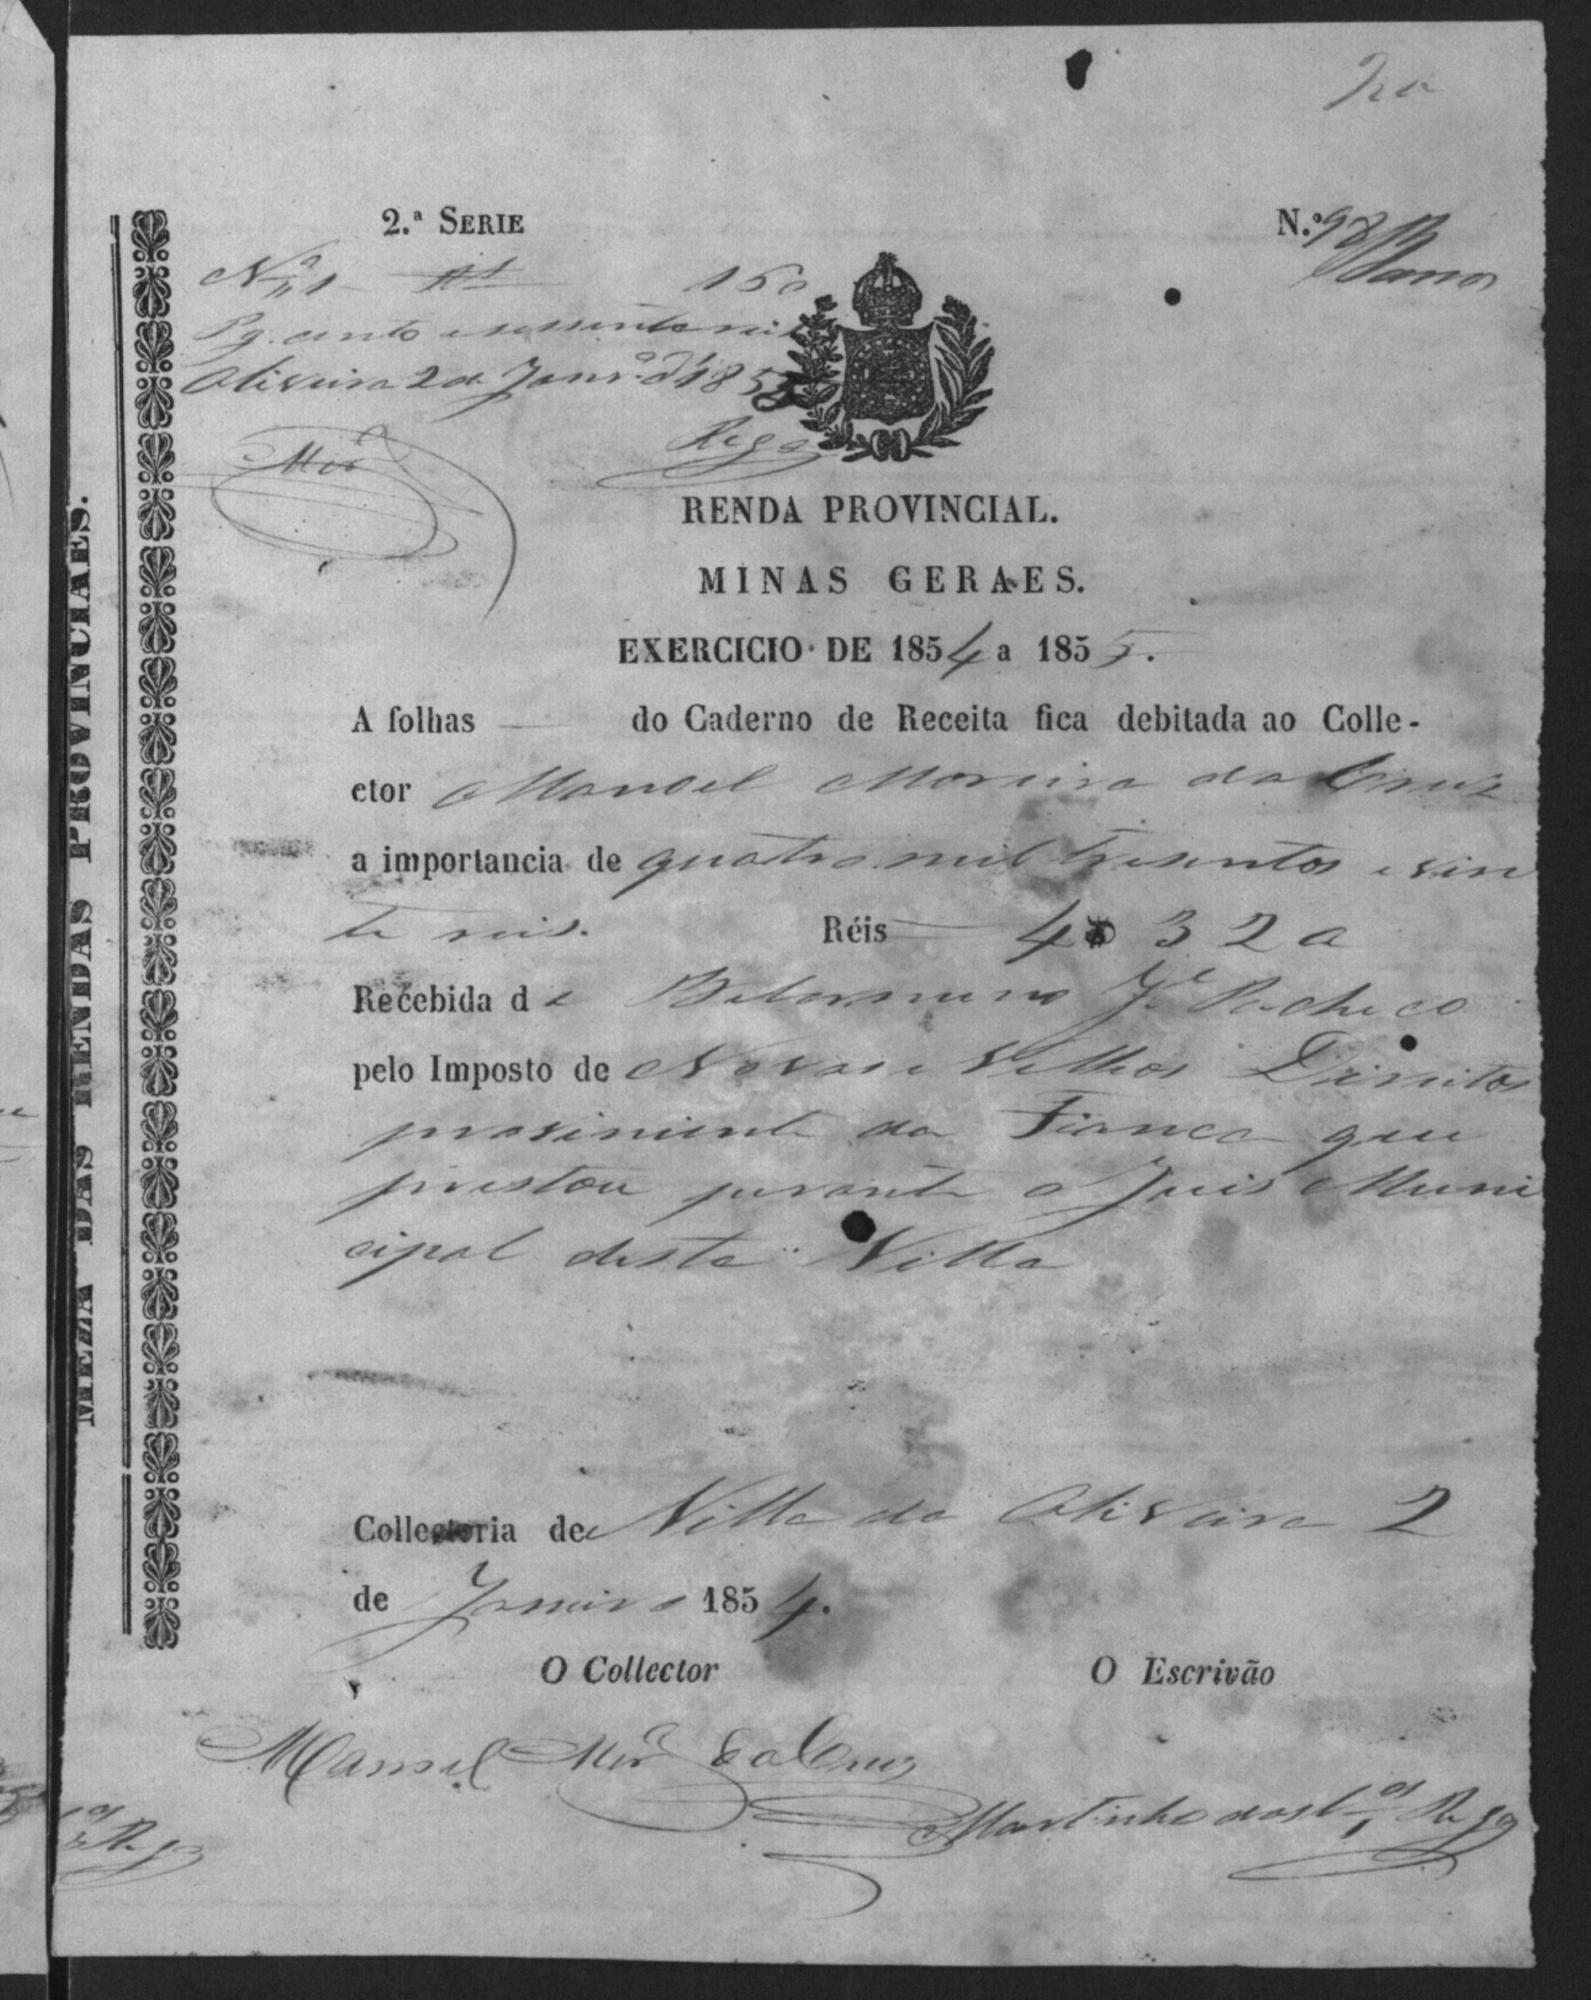 2.ª SERIE
N.º 98
Nº 1 160
Pg. cento e sessenta reis
Oliveira 2 de Janrº d 185
Mrª Rego
RENDA PROVINCIAL.
MINAS GERAES.
EXERCICIO DE 1854 a 1855.
A folhas — do Caderno de Receita fica debitada ao Colle-
ctor Manoel Moreira da Cruz
a importancia de quatro mil tresentos e vin
te reis. Réis 4$320
Recebida de Belarmino Je Pacheco
pelo Imposto de Novos e Velhos Direitos
proviniente da Fiança que
prestou perante o Juis Muni
cipal desta Villa
Collectoria de Villa da Oliveira 2
de Janeiro 1854.
O Collector O Escrivão
Manoel Mrª da Cruz
Martinho das Rego
MEZA DAS RENDAS PROVINCIAES.